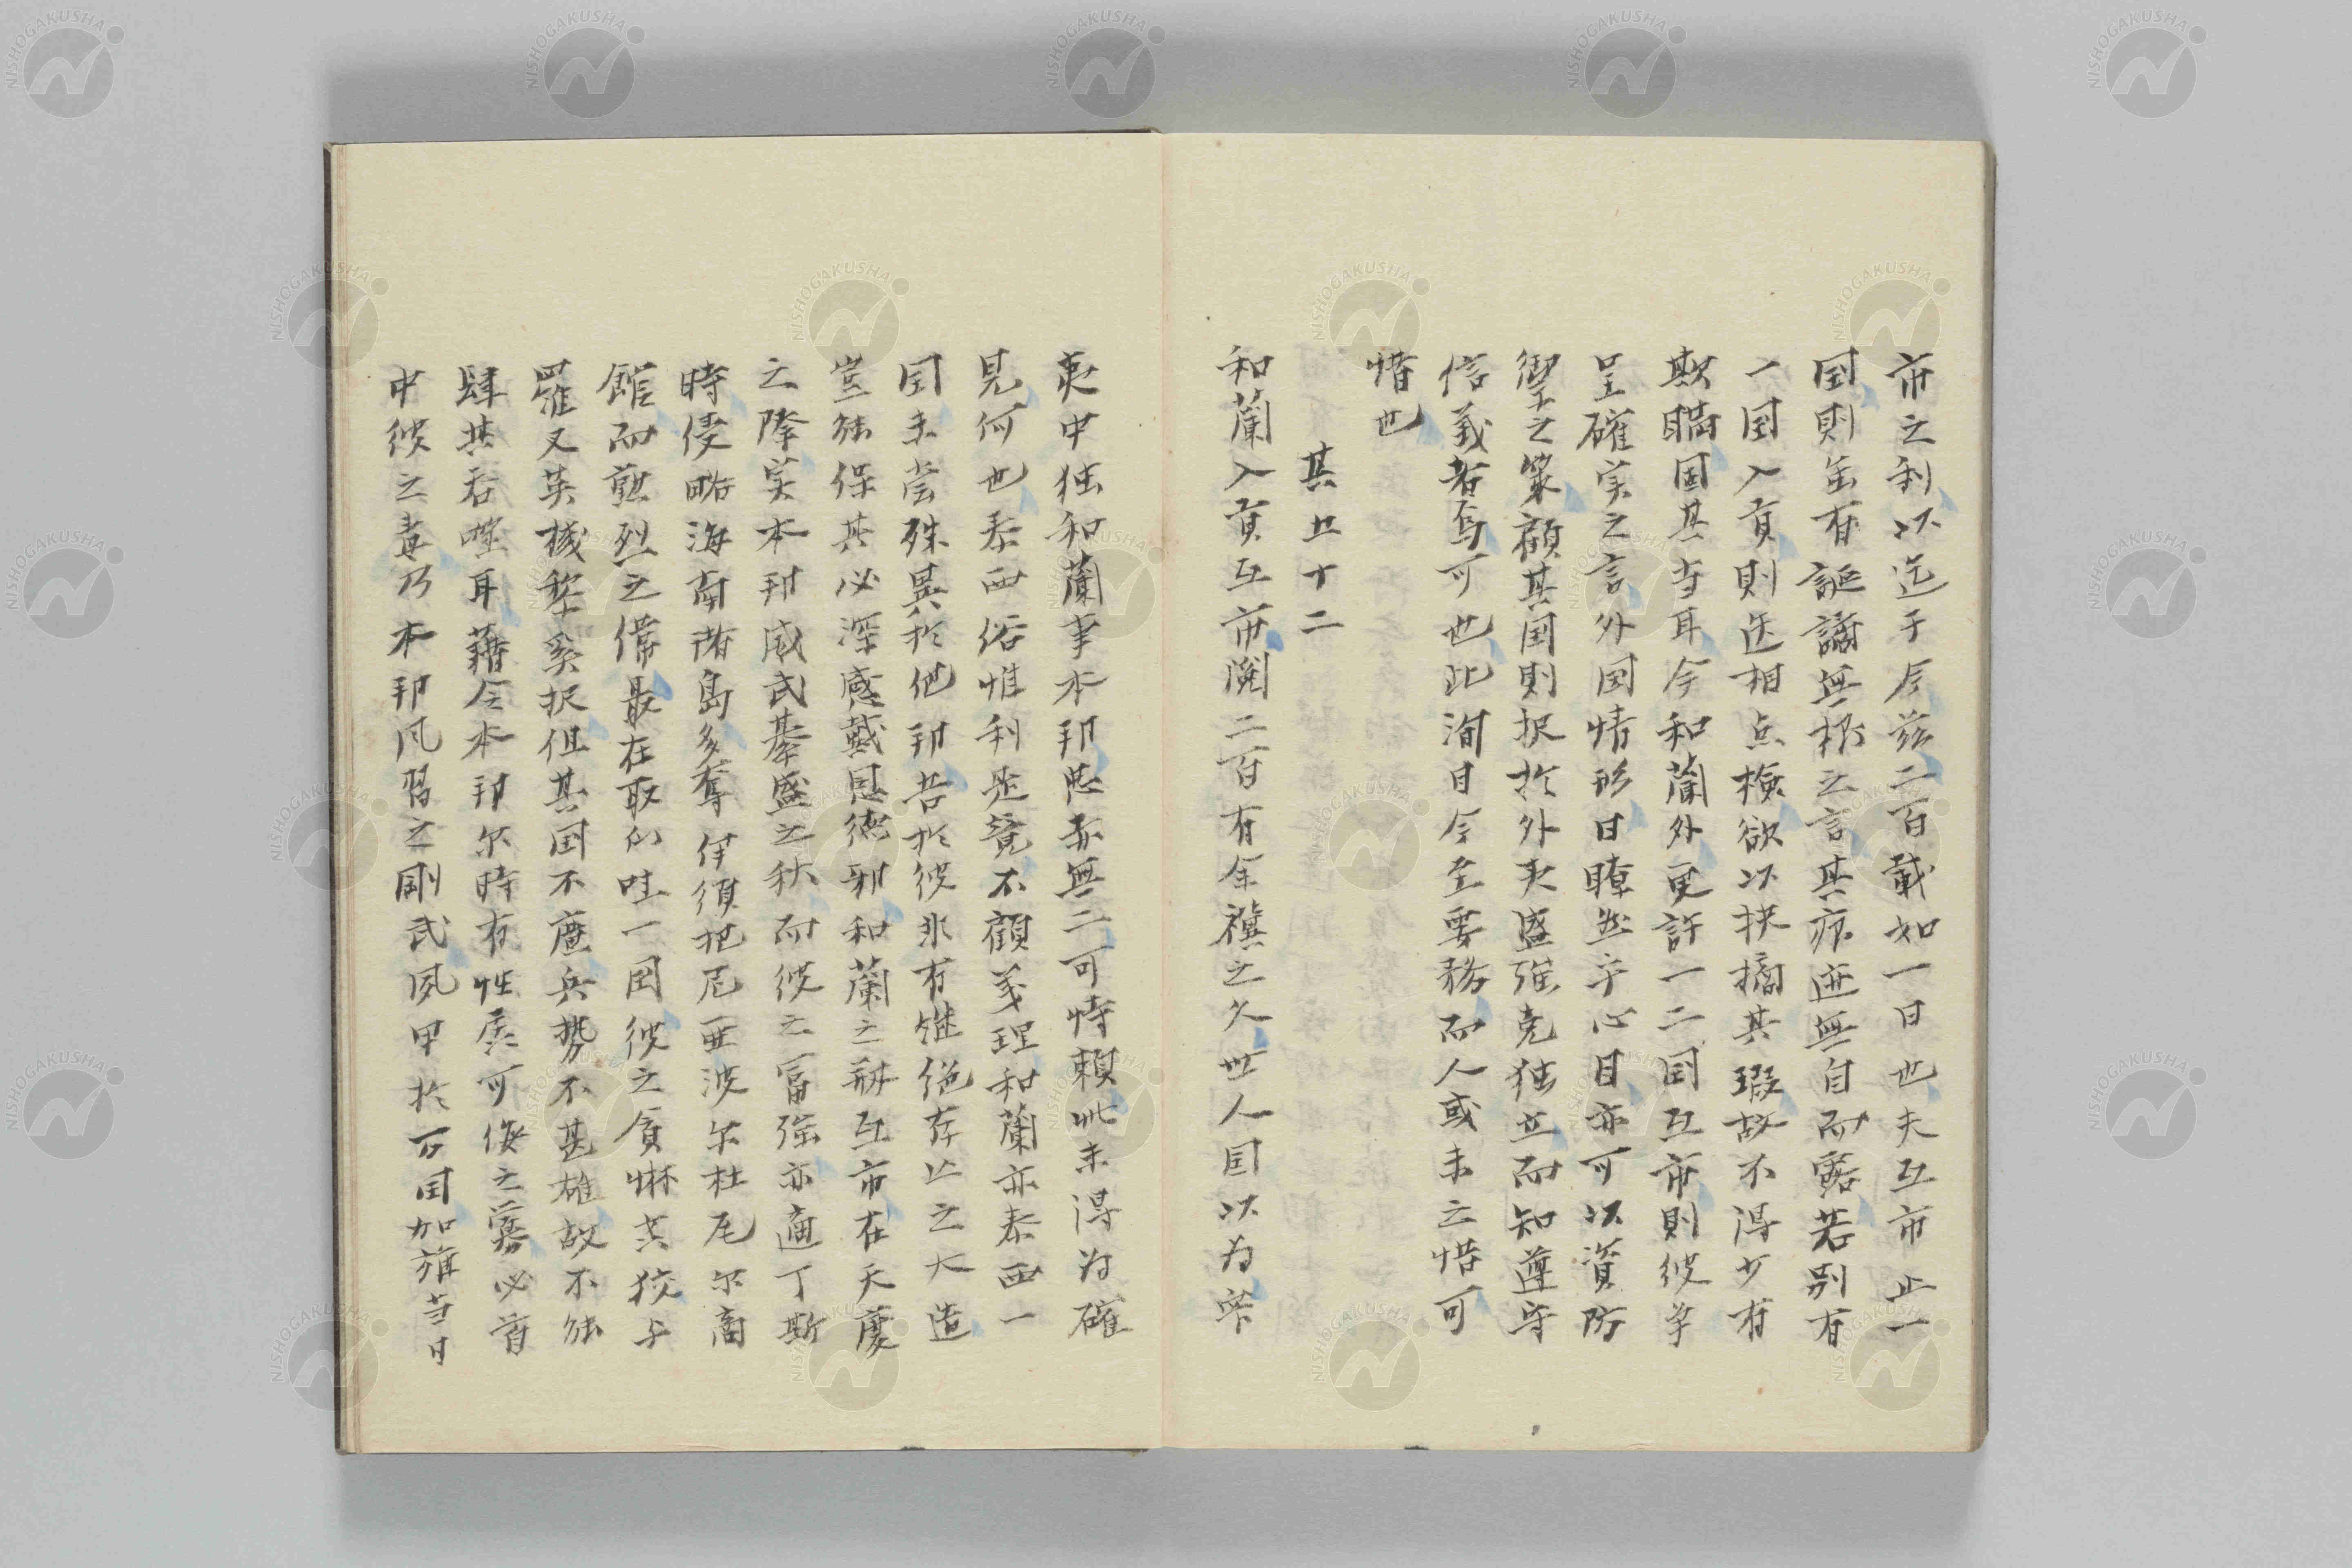 市之利以迄于今茲二百載如一日也夫互市止一
国則縱有誣謝無極之言其疵迹無自而露若別有
一国入貢則迭相点検欲以抉摘其瑕故不得少有
欺瞞固其当耳今和蘭外更許一二国互市則彼争
呈確実之言外国情形日瞭然乎心目亦可以資防
禦之策顧其国則択於外夷盛强克独立而知遵守
信義者焉可也此洵目今至要務而人或未之悟可
惜也
其五十二
和蘭入貢互市閲二百有余禩之久世人因以为
夷中独和蘭事本邦忠赤無二可恃頼此未得为確
見何也泰西俗惟利是競不顧義理和蘭亦泰西一
国未嘗殊異於他邦吾於彼非有継絶存亡之大造
豈能保其必深感戴恩徳邪和蘭之耕互市在天慶
之降実本邦威武綦盛之秋而彼之富强亦適丁斯
時侵略海南諸島多奪伊須把尼亜波尔杜瓦尔商
館而勲烈之偉最在取爪哇一国彼之貪惏其狡与
羅又英機黎奚択但其国不麁兵勢不甚雄故不能
肆其呑噬耳藉令本邦尔時有性孱可侮之釁必首
中彼之毒乃本邦風習之剛武夙甲於万国加旃当日
NISHOGAKUSHA